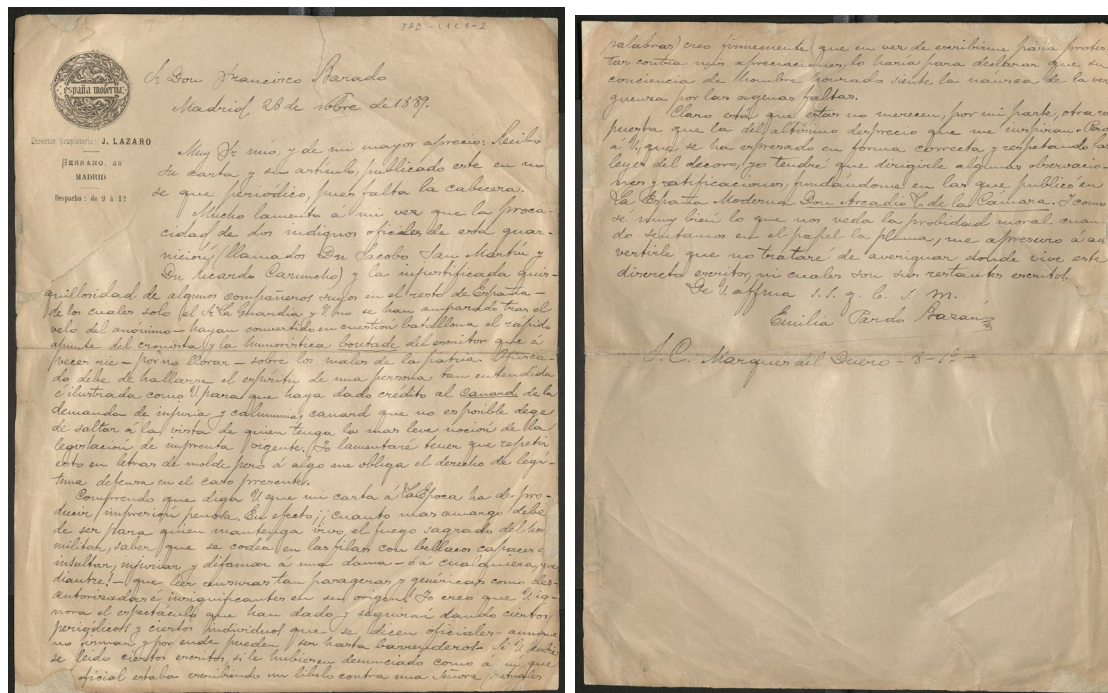 Sr Don Francisco Barado
Madrid 28 de nobre de 1889.
españa moderna
Director propietario: J. LAZARO
SERRANO, 68
MADRID
Despacho: de 9 á 12
Muy Sr mío, y de mi mayor aprecio: Recibo
su carta y su artículo, publicado este en no
se que periódico, pues falta la cabecera.
Mucho lamento á mi vez que la proca-
cidad de dos indignos oficiales de esta guar-
nición (llamados Dn Jacobo San Martín y
Dn Ricardo Caruncho) y la injustificada quis-
quillosidad de algunos compañeros suyos en el resto de España—
de los cuales solo el Sr La Guardia y U no se han amparado tras el
velo del anónimo—hayan convertido en cuestión batallona el rápido
apunte del cronista y la humorística boutade del escritor que á
veces rie—por no llorar—sobre los males de la patria. Ofusca-
do debe de hallarse el espíritu de una persona tan entendida
é ilustrada como U para que haya dado crédito al canard de la
demanda de injuria y calumnia, canard que no es posible deje
de saltar á la vista de quien tenga la mas leve noción de la
legislación de imprenta vigente. Yo lamentaré tener que repetir
esto en letras de molde pero á algo me obliga el derecho de legí-
tima defensa en el caso presente.
Comprendo que diga U que mi carta á La Época ha de pro-
ducir impresión penosa. En efecto; ¡cuanto mas amargo debe
de ser para quien mantenga vivo el fuego sagrado del honor
militar, saber que se codea en las filas con bellacos capaces de
insultar, injuriar y difamar á una dama—ó á cualquiera, que
diantre!—que leer censuras tan pasageras y genéricas como des-
autorizadas é insignificantes en su origen! Yo creo que U ig-
nora el espectáculo que han dado y seguirán dando ciertos
periódicos y ciertos individuos que se dicen oficiales—aunque
no firman y por ende pueden ser hasta barrenderos. Si U hubie-
se leido ciertos escritos, si le hubiesen denunciado como á mí que
oficial estaba escribiendo un libelo contra una señora
palabras) creo firmemente que en vez de escribirme para protes-
tar contra mis apreciaciones lo haria para declarar que su
conciencia de hombre honrado siente la náusea de la ver-
guenza por las agenas faltas.
Claro está que estas no merecen, por mi parte, otra res-
puesta que la del altísimo desprecio que me inspiran. Pero
á U, que se ha espresado en forma correcta y respetando las
leyes del decoro, yo tendré que dirigirle algunas observacio-
nes y ratificaciones, fundándome en las que publicó en
La España Moderna Don Arcadio S. de la Cámara. Y como
sé muy bien lo que nos veda la probidad moral cuan-
do sentamos en el papel la pluma, me apresuro á ad-
vertirle que no trataré de averiguar donde vive este
discreto escritor, ni cuales son sus restantes escritos.
De U affma s. s. q. b. s. m.
Emilia Pardo Bazán
S. C. Marqués del Duero—8—1º—